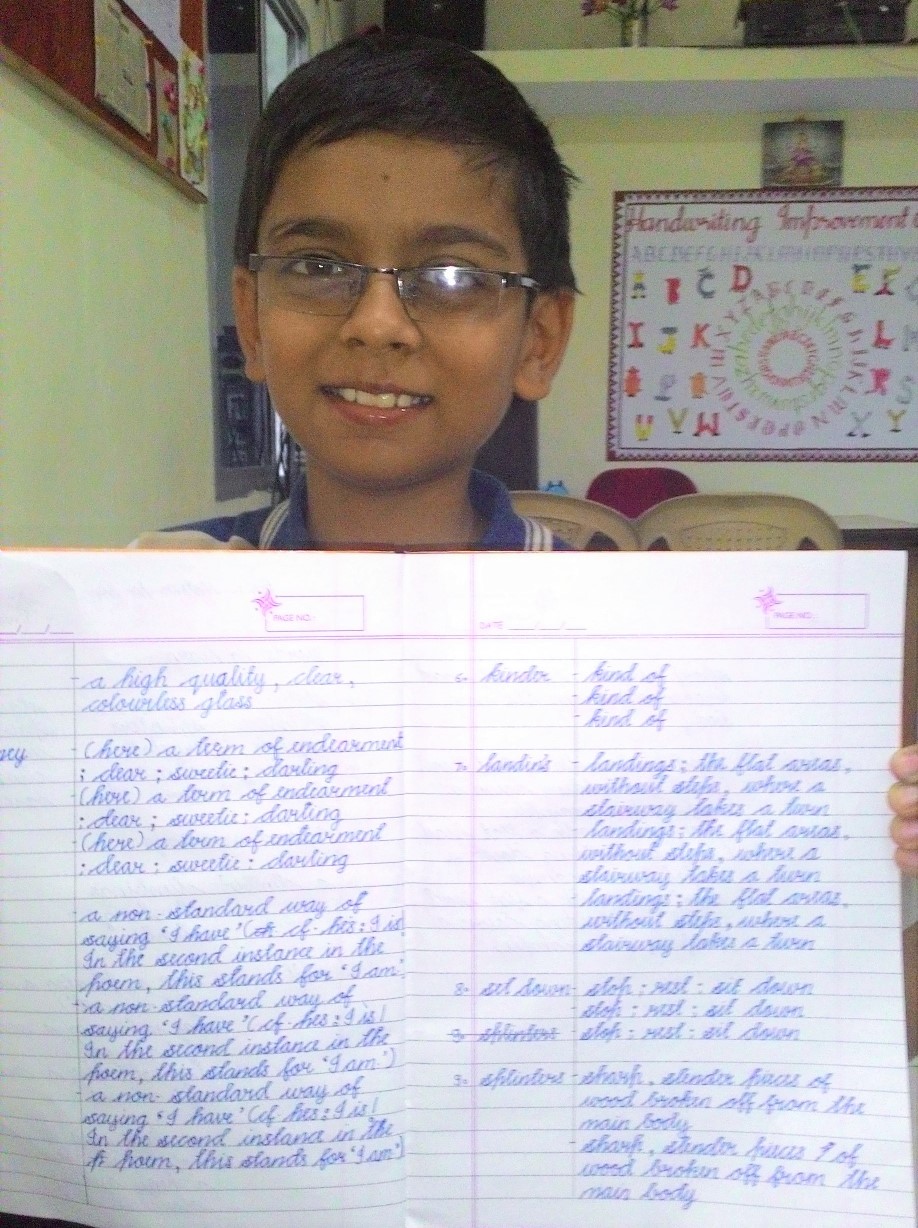 Handwriting Improvement
ABCDEFGHIJKLMNOPQRSTUVW
A B C D E F
I J K L
R S
U V W X Y
PAGE NO.:
DATE ___/___/___
PAGE NO.:
- a high quality, clear,
colourless glass
ney - (here) a term of endearment
; dear ; sweetie ; darling
- (here) a term of endearment
; dear ; sweetie ; darling
- (here) a term of endearment
; dear ; sweetie ; darling
- a non-standard way of
saying 'I have' (cf. hes ; I is
In the second instance in the
poem, this stands for 'I am'
- a non-standard way of
saying 'I have' (cf. hes ; I is/
In the second instance in the
poem, this stands for 'I am')
- a non-standard way of
saying 'I have' (cf hes ; I is/
In the second instance in the
poem, this stands for 'I am')
6. kinder - kind of
- kind of
- kind of
7. landin's - landings ; the flat areas,
without steps, where a
stairway takes a turn
- landings ; the flat areas,
without steps, where a
stairway takes a turn
- landings ; the flat areas,
without steps, where a
stairway takes a turn
8. set down - stop ; rest ; sit down
- stop ; rest ; sit down
9. splinters - stop ; rest ; sit down
9. splinters - sharp, slender pieces of
wood broken off from the
main body
- sharp, slender pieces of
wood broken off from the
main body